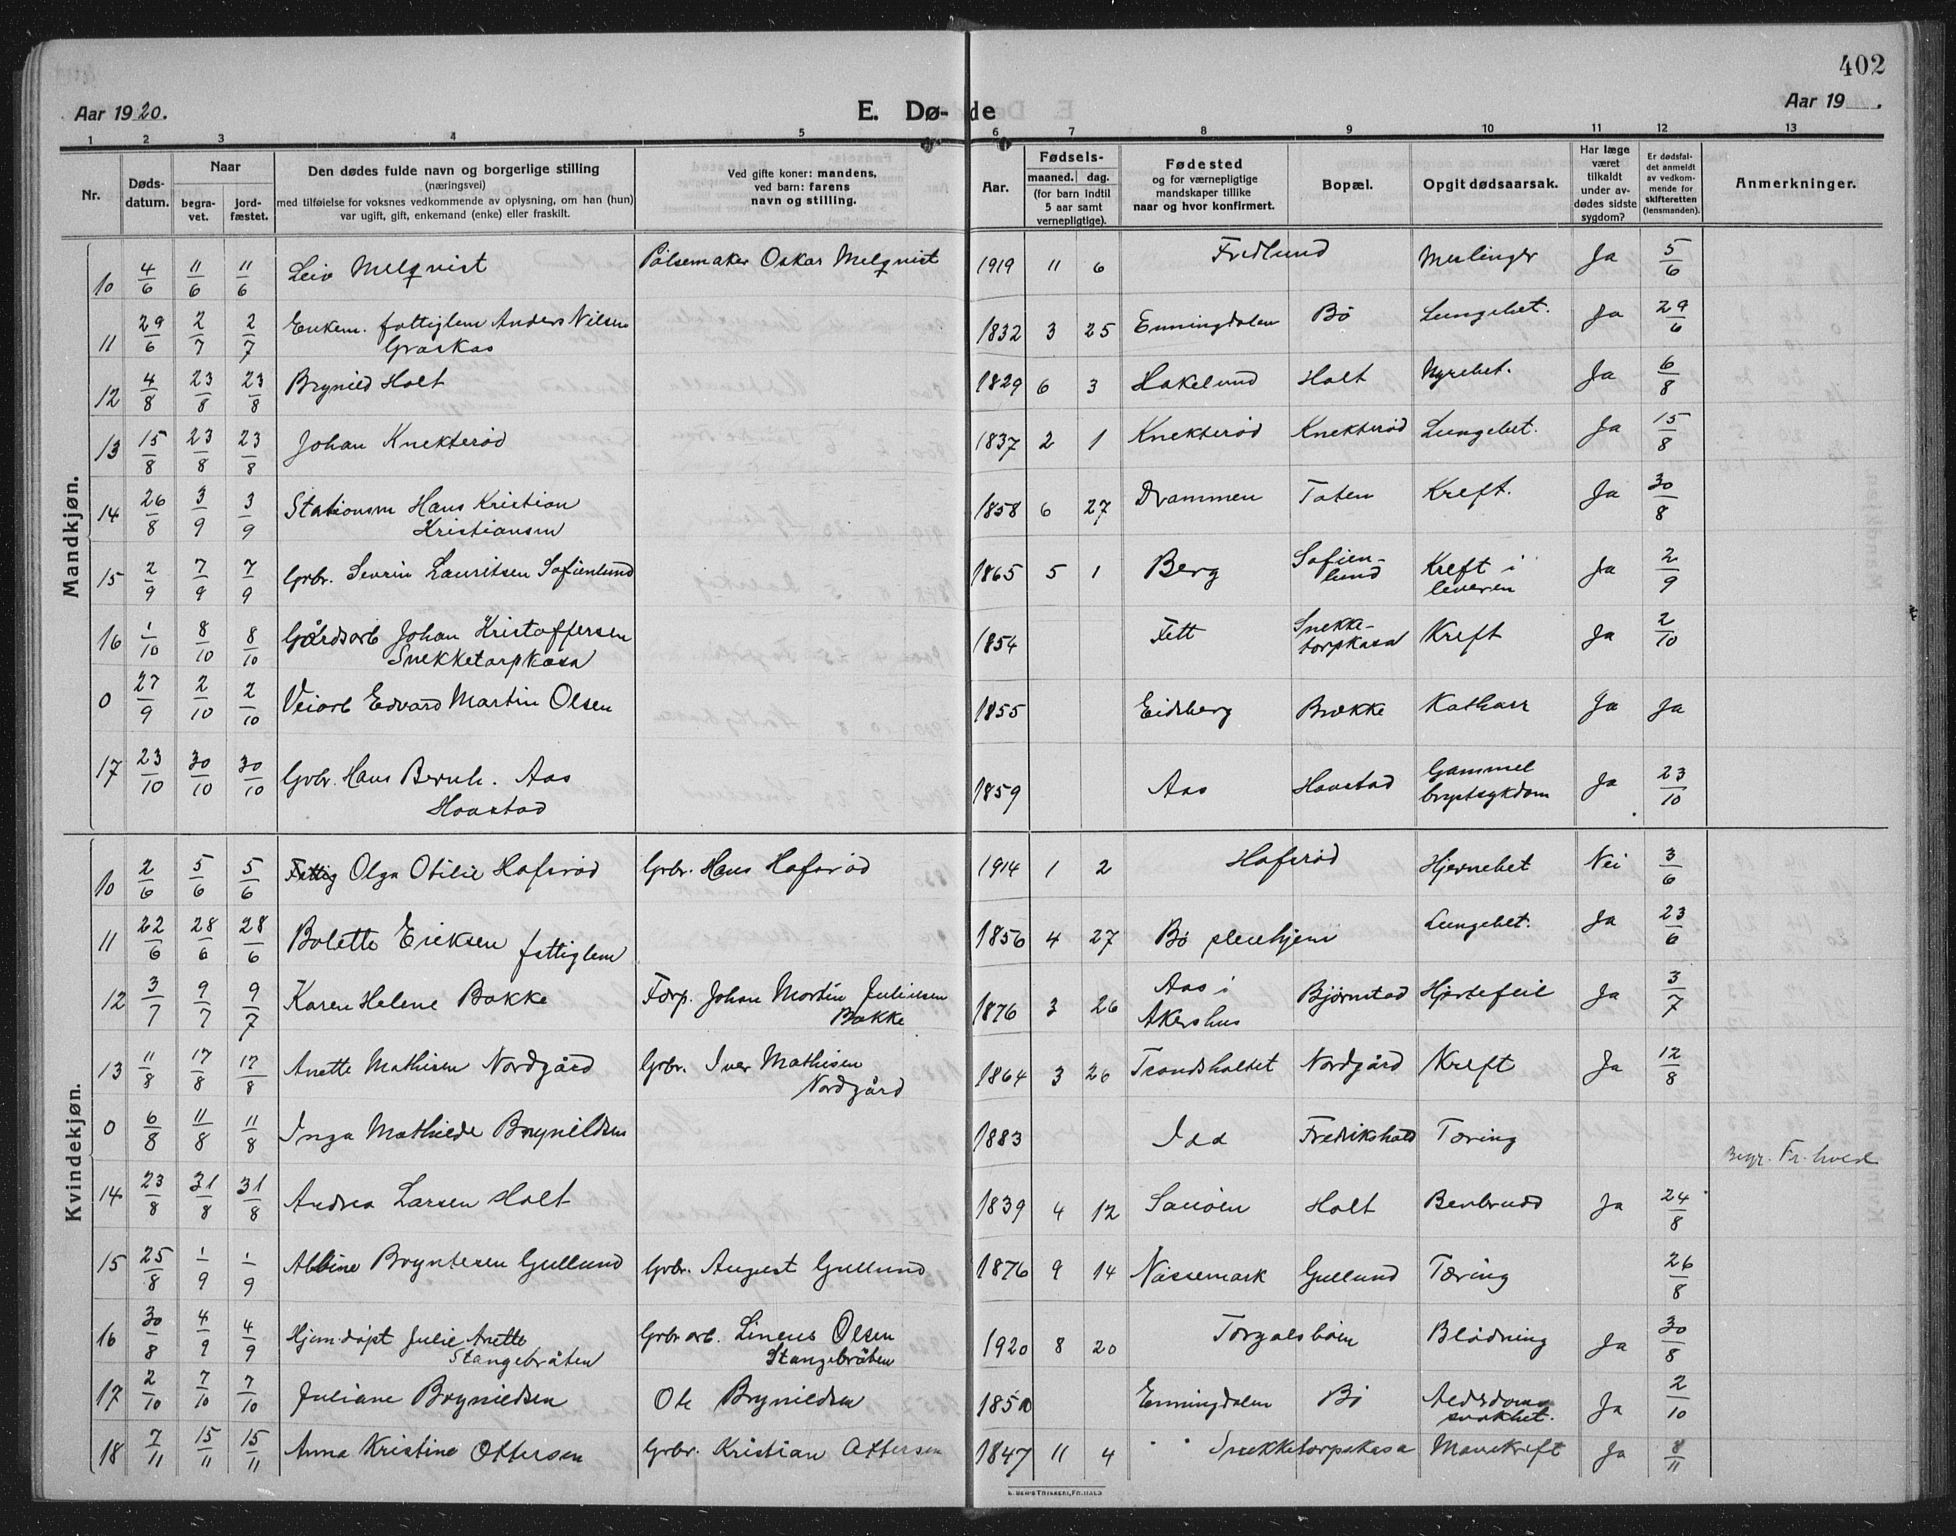 402
Aar 1920.
E. Dø- de
Aar 19 .
1 2 3 4 5 6 7 8 9 10 11 12 13
Nr.
Døds-
datum.
Naar
begra-
vet.
jord-
fæstet.
Den dødes fulde navn og borgerlige stilling
(næringsvei)
med tilføielse for voksnes vedkommende av oplysning, om han (hun)
var ugift, gift, enkemand (enke) eller fraskilt.
Ved gifte koner: mandens,
ved barn: farens
navn og stilling.
Aar.
Fødsels-
maaned. dag.
(for barn indtil
5 aar samt
vernepligtige).
Fødested
og for værnepligtige
mandskaper tillike
naar og hvor konfirmert.
Bopæl.
Opgit dødsaarsak.
Har læge
været
tilkaldt
under av-
dødes sidste
sygdom?
Er dødsfal-
det anmeldt
av vedkom-
mende for
skifteretten
(lensmanden).
Anmerkninger.
Mandkjøn.
10 4/6 11/6 11/6 Leiv Melqvist Pølsemaker Oskar Melqvist 1919 11 6 Fredlund Ja 5/6
11 29/6 2/7 2/7 Enkem. fattiglem Anders Nilsen 1832 3 25 Enningdalen Bø Lungebet. Ja 29/6
Graskas
12 4/8 23/8 23/8 Brynild Holt 1829 6 3 Hakelund Holt Nyrebet. Ja 6/8
13 15/8 23/8 23/8 Johan Knekterød 1837 2 1 Knekterød Knekterød Lungebet. Ja 15/8
14 26/8 3/9 3/9 Stationsm Hans Kristian 1858 6 27 Drammen Toten Kreft. Ja 30/8
Kristiansen
15 2/9 7/9 7/9 Grbr. Severin Lauritsen Sofienlund 1865 5 1 Berg Sofien-
lund Kreft i
leveren Ja 2/9
16 1/10 8/10 8/10 Gårdsarb Johan Kristoffersen 1854 Fett Snekke-
torpkasa Kreft Ja 2/10
Snekketorpkasa
0 27/9 2/10 2/10 Veiarb Edvard Martin Olsen 1855 Eidsberg Brække Katharr Ja Ja
17 23/10 30/10 30/10 Grbr. Hans Bernh. Aas 1859 Aas Haastad Gammel
brystsykdom Ja 23/10
Haastad
Kvindekjøn.
10 2/6 5/6 5/6 Olga Otilie Hafsrød Grbr. Hans Hafsrød 1914 1 2 Hafsrød Hjernebet Nei 3/6
11 22/6 28/6 28/6 Bolette Eriksen fattiglem 1856 4 27 Bø pleiehjem Lungebet. Ja 23/6
12 3/7 9/7 9/7 Karen Helene Bakke Forp. Johan Martin Juliussen
Bakke 1876 3 26 Aas i
Akershus Bjørnstad Hjertefeil Ja 3/7
13 11/8 17/8 17/8 Anette Mathisen Nordgård Grbr. Iver Mathisen
Nordgård 1864 3 20 Trondsholtet Nordgård Kreft Ja 12/8
0 6/8 11/8 11/8 Inga Mathilde Brynildsen 1883 Idd Fredrikshald Tæring Begr. Fr.hald
14 23/8 31/8 31/8 Andrea Larsen Holt 1839 4 12 Sanøen Holt Benbrudd Ja 24/8
15 25/8 1/9 1/9 Albine Bryntesen Gullund Grbr. August Gullund 1876 9 14 Nössemark Gullund Tæring 26/8
16 30/8 4/9 4/9 Hjem.døpt Julie Anette
Stangebråten Grbr arb. Lineus Olsen
Stangebråten 1920 8 20 Torgalsbøen Blødning Ja 30/8
17 2/10 7/10 7/10 Juliane Brynildsen Ole Brynildsen 1850 Enningdalen Bø Alderdoms
svakhet. Ja 2/10
18 7/11 15/11 15/11 Anna Kristine Ottersen Grbr. Kristian Ottersen 1847 11 4 " " Snekketorpskasa Mavekreft Ja 8/11